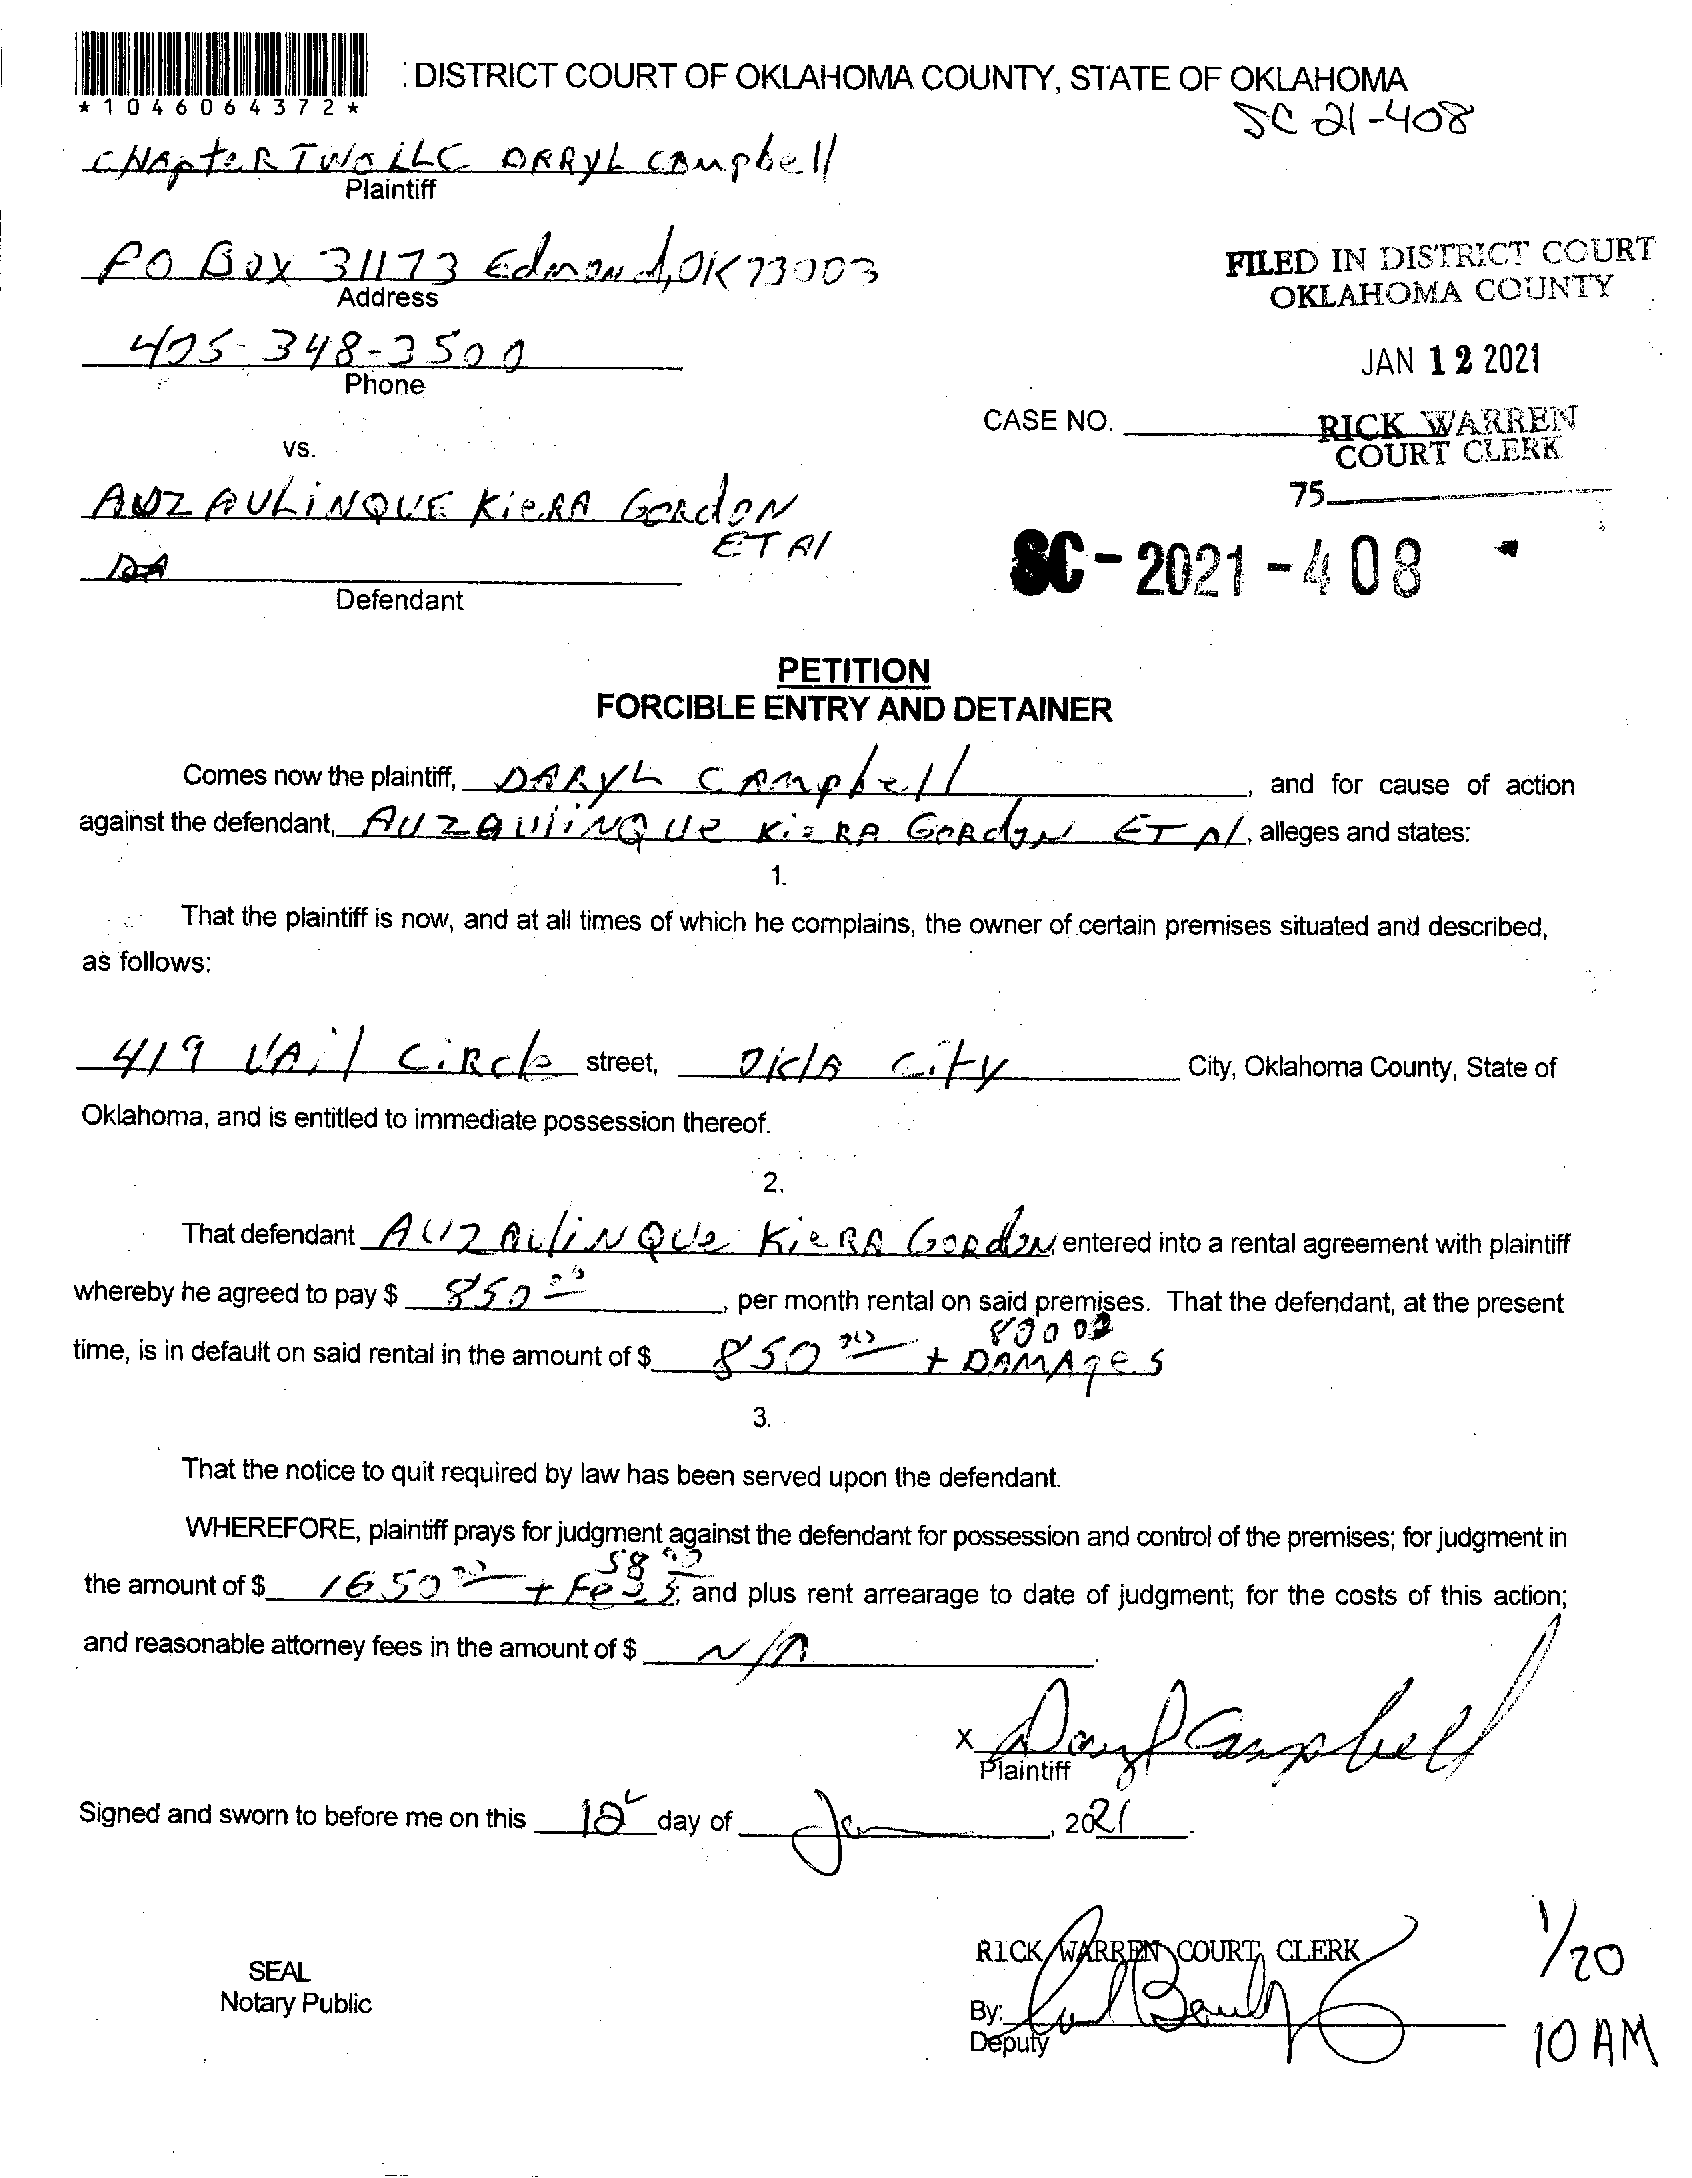 : DISTRICT COURT OF OKLAHOMA COUNTY, STATE OF OKLAHOMA
*1046064372*
SC 21-408
CHApteR TWO LLC DARYL CAMpbell
Plaintiff
PO BOX 31173 Edmond, OK 73003
Address
FILED IN DISTRICT COURT
OKLAHOMA COUNTY
405-348-3500
Phone
JAN 12 2021
CASE NO.
RICK WARREN
COURT CLERK
vs.
75
AUZAULiNQUE KieRA GORdON
ET Al
SC-2021-408
Defendant
PETITION
FORCIBLE ENTRY AND DETAINER
Comes now the plaintiff, DARYL CAMpbell, and for cause of action
against the defendant, AUZAUliNQUe KieRA GORdON ET Al, alleges and states:
1.
That the plaintiff is now, and at all times of which he complains, the owner of certain premises situated and described,
as follows:
419 VAil CiRcle street, OklA City City, Oklahoma County, State of
Oklahoma, and is entitled to immediate possession thereof.
2.
That defendant AUZAUliNQUe KieRA GORdON entered into a rental agreement with plaintiff
whereby he agreed to pay $ 850 00, per month rental on said premises. That the defendant, at the present
800 00
time, is in default on said rental in the amount of $ 850 00 + DAMAges
3.
That the notice to quit required by law has been served upon the defendant.
WHEREFORE, plaintiff prays for judgment against the defendant for possession and control of the premises; for judgment in
58 00
the amount of $ 1650 00 + Fees; and plus rent arrearage to date of judgment; for the costs of this action;
and reasonable attorney fees in the amount of $ N/A
x Daryl Campbell
Plaintiff
Signed and sworn to before me on this 12 day of Jan, 2021
RICK WARREN COURT CLERK
1/20
SEAL
Notary Public
By:
Deputy
10 AM